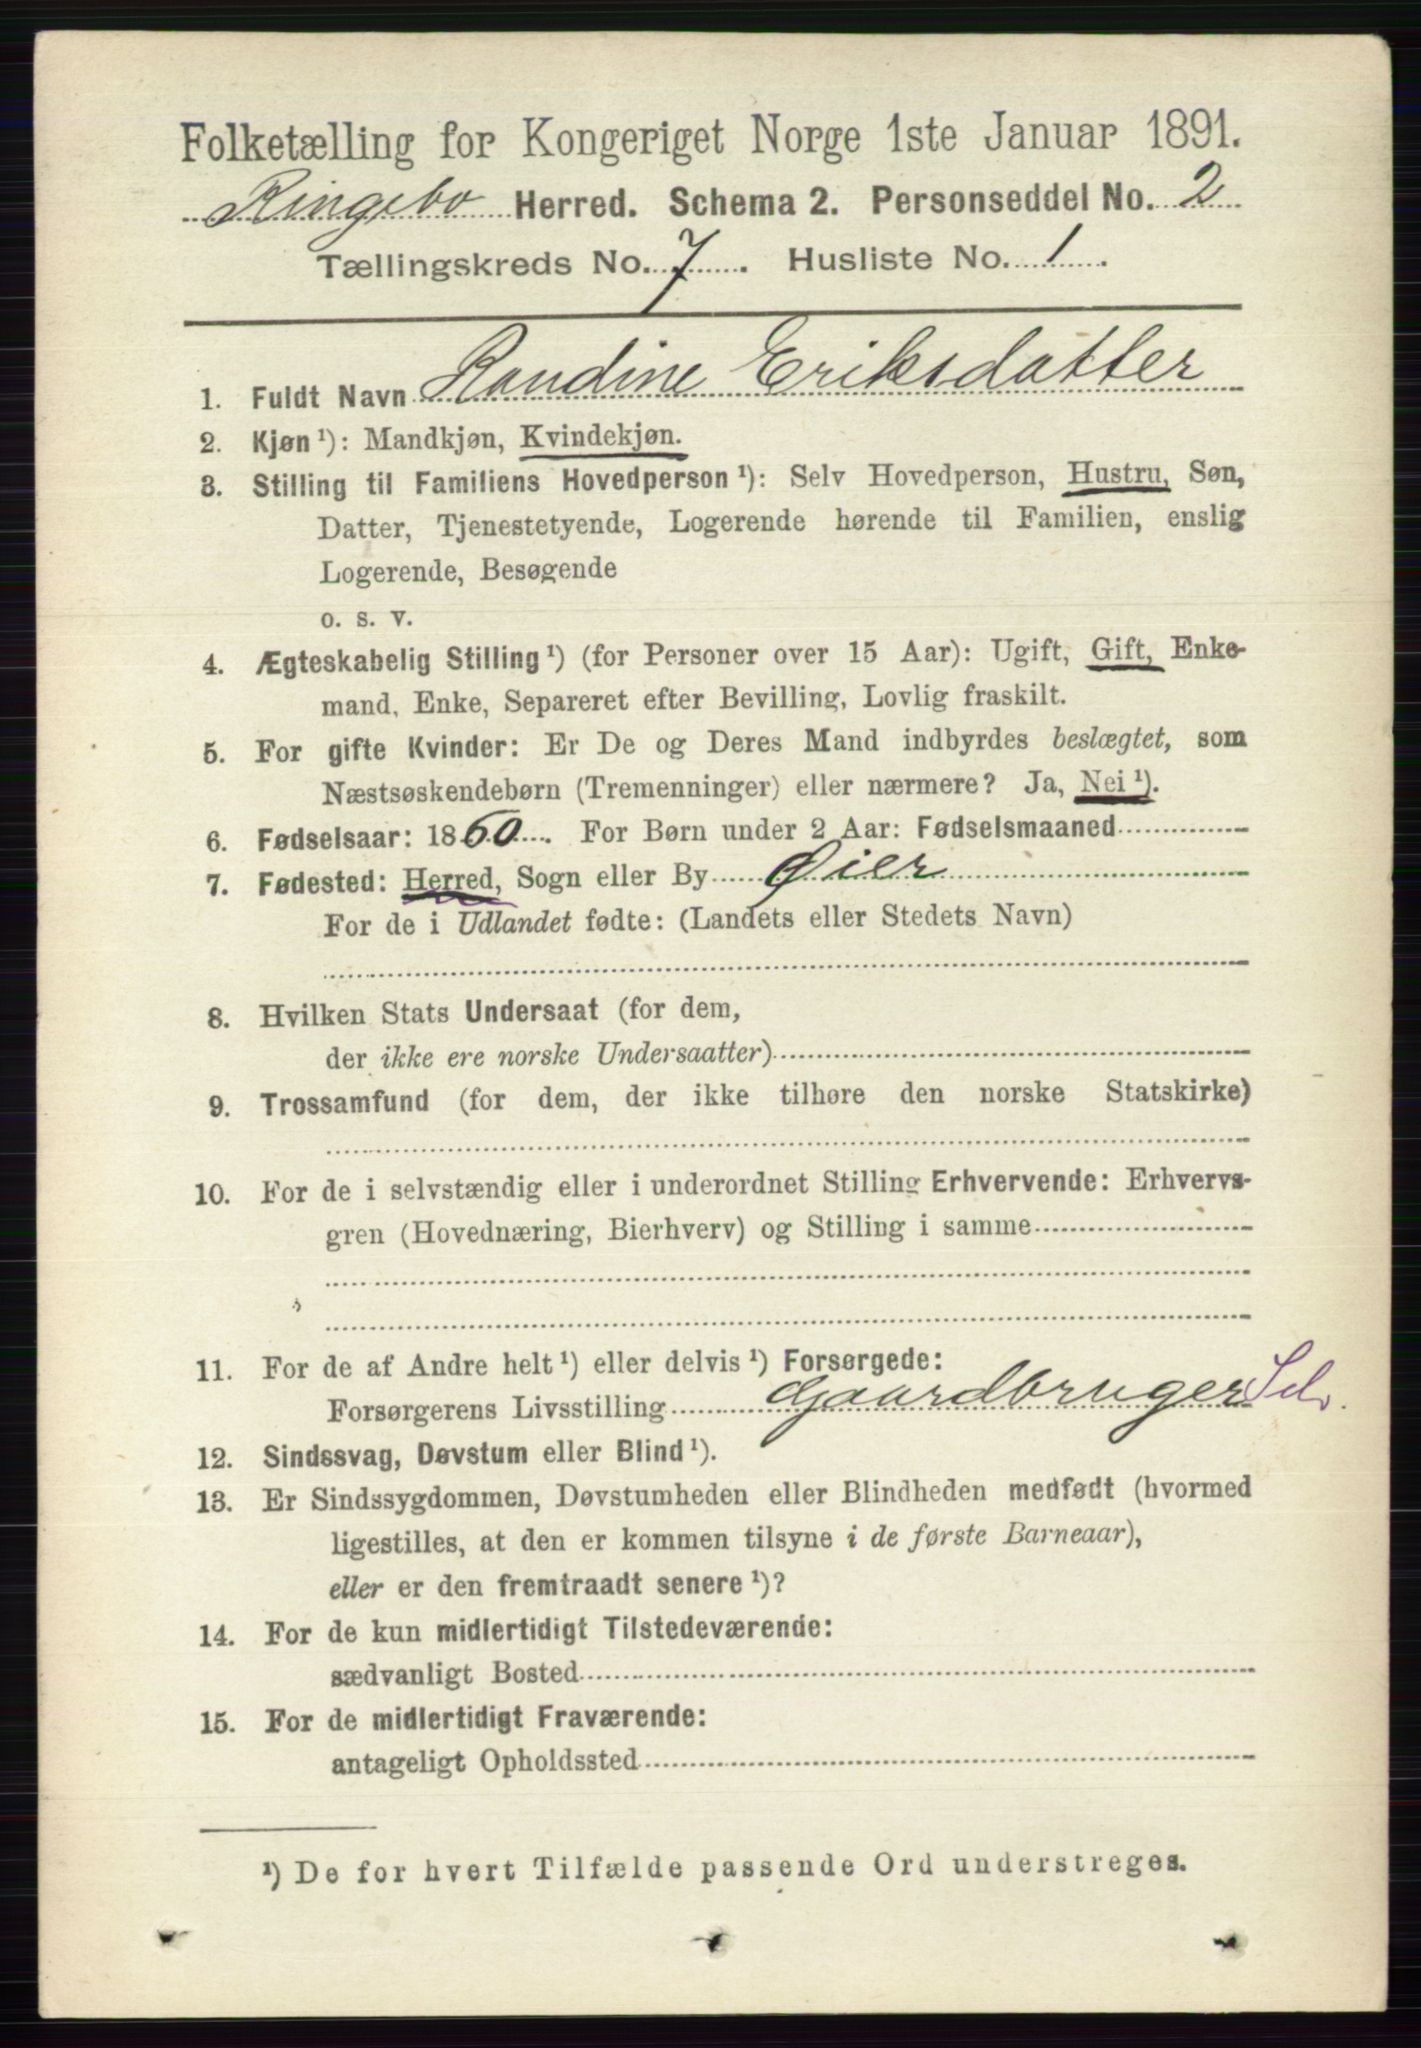 Folketælling for Kongeriget Norge 1ste Januar 1891.
Ringebo Herred. Schema 2. Personseddel No. 2
Tællingskreds No. 7. Husliste No. 1.
1. Fuldt Navn Randine Eriksdatter
2. Kjøn ¹): Mandkjøn, Kvindekjøn.
3. Stilling til Familiens Hovedperson ¹): Selv Hovedperson, Hustru, Søn,
Datter, Tjenestetyende, Logerende hørende til Familien, enslig
Logerende, Besøgende
o. s. v.
4. Ægteskabelig Stilling ¹) (for Personer over 15 Aar): Ugift, Gift, Enke-
mand, Enke, Separeret efter Bevilling, Lovlig fraskilt.
5. For gifte Kvinder: Er De og Deres Mand indbyrdes beslægtet, som
Næstsøskendebørn (Tremenninger) eller nærmere? Ja, Nei ¹).
6. Fødselsaar: 1860. For Børn under 2 Aar: Fødselsmaaned
7. Fødested: Herred, Sogn eller By Øier
For de i Udlandet fødte: (Landets eller Stedets Navn)
8. Hvilken Stats Undersaat (for dem,
der ikke ere norske Undersaatter)
9. Trossamfund (for dem, der ikke tilhøre den norske Statskirke)
10. For de i selvstændig eller i underordnet Stilling Erhvervende: Erhvervs-
gren (Hovednæring, Bierhverv) og Stilling i samme
11. For de af Andre helt ¹) eller delvis ¹) Forsørgede:
Forsørgerens Livsstilling Gaardbruger Sel.
12. Sindssvag, Døvstum eller Blind ¹).
13. Er Sindssygdommen, Døvstumheden eller Blindheden medfødt (hvormed
ligestilles, at den er kommen tilsyne i de første Barneaar),
eller er den fremtraadt senere ¹)?
14. For de kun midlertidigt Tilstedeværende:
sædvanligt Bosted
15. For de midlertidigt Fraværende:
antageligt Opholdssted
¹) De for hvert Tilfælde passende Ord understreges.